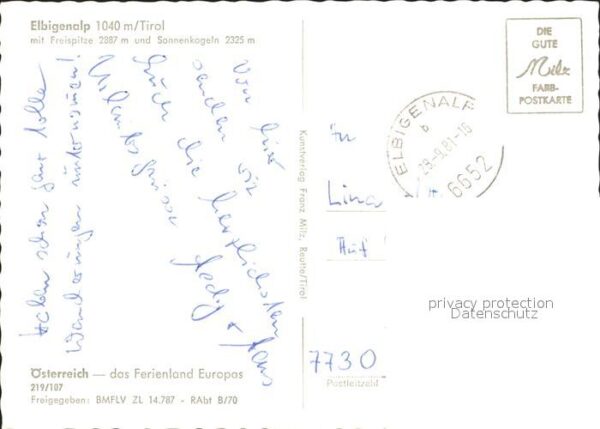 Elbigenalp 1040 m/Tirol
mit Freispitze 2887 m und Sonnenkogeln 2325 m
Von hier
senden wir
Euch die herzlichsten
Urlaubsgrüsse
Hedy + Hans
Haben schon ganz tolle
Wanderungen unternommen!
Österreich — das Ferienland Europas
219/107
Freigegeben: BMFLV ZL 14.787 - RAbt B/70
Kunstverlag Franz Milz, Reutte/Tirol
DIE
GUTE
Milz
FARB-
POSTKARTE
ELBIGENALP
b
29.-9.81-16
6652
Lina
7730
Postleitzahl
privacy protection
Datenschutz